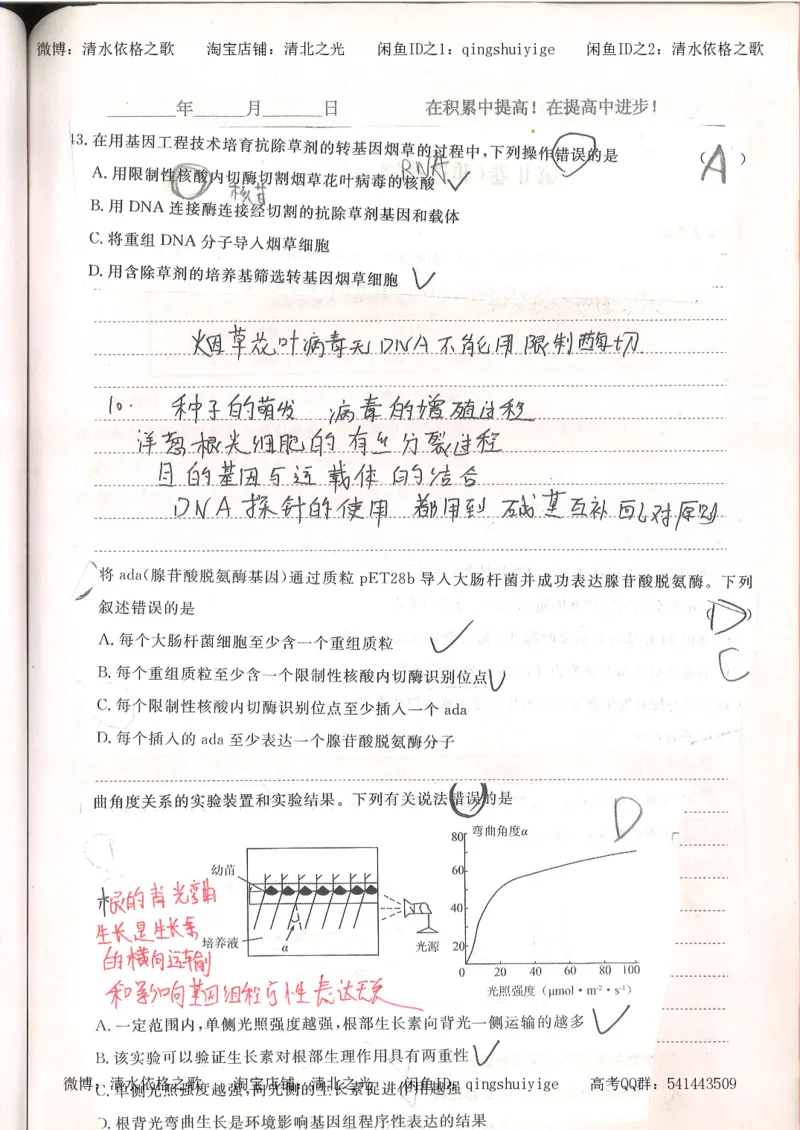 微博：清水依格之歌 淘宝店铺：清北之光 闲鱼ID之1：qingshuiyige 闲鱼ID之2：清水依格之歌
______年______月______日 在积累中提高！在提高中进步！
13. 在用基因工程技术培育抗除草剂的转基因烟草的过程中，下列操作错误的是 （A）
RNA
A. 用限制性核酸内切酶切割烟草花叶病毒的核酸 ✓
核苷
B. 用 DNA 连接酶连接经切割的抗除草剂基因和载体
C. 将重组 DNA 分子导入烟草细胞
D. 用含除草剂的培养基筛选转基因烟草细胞 ✓
烟草花叶病毒无DNA不能用限制酶切
10. 种子的萌发 病毒的增殖过程
洋葱根尖细胞的有丝分裂过程
目的基因与运载体的结合
DNA探针的使用 都用到碱基互补配对原则
将 ada（腺苷酸脱氨酶基因）通过质粒 pET28b 导入大肠杆菌并成功表达腺苷酸脱氨酶。下列
叙述错误的是 （D）
A. 每个大肠杆菌细胞至少含一个重组质粒 ✓
C
B. 每个重组质粒至少含一个限制性核酸内切酶识别位点 ✓
C. 每个限制性核酸内切酶识别位点至少插入一个 ada
D. 每个插入的 ada 至少表达一个腺苷酸脱氨酶分子
曲角度关系的实验装置和实验结果。下列有关说法错误的是
D
幼苗
培养液
α
光源
弯曲角度α
80
60
40
20
0 20 40 60 80 100
光照强度（μmol·m⁻²·s⁻¹）
根的背光弯曲
生长是生长素
的横向运输
和影响基因组程序性表达无关
A. 一定范围内，单侧光照强度越强，根部生长素向背光一侧运输的越多 ✓
B. 该实验可以验证生长素对根部生理作用具有两重性 ✓
C. 单侧光照强度越强，向光侧的生长素促进作用越强
微博：清水依格之歌 淘宝店铺：清北之光 闲鱼ID：qingshuiyige 高考QQ群：541443509
D. 根背光弯曲生长是环境影响基因组程序性表达的结果